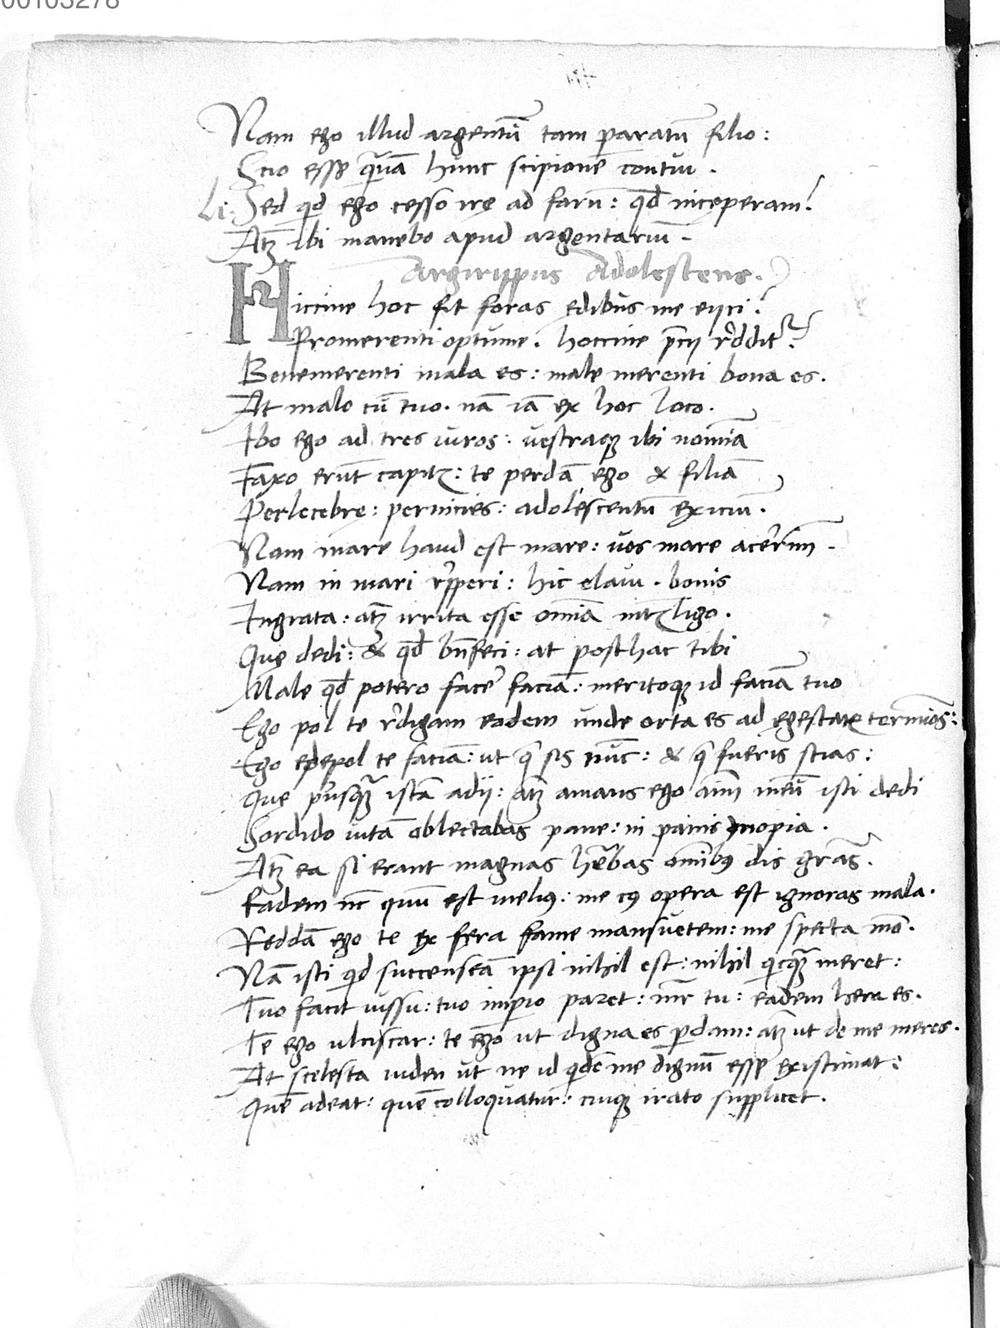 00103278
Nam ego illud argentū tam paratū filio:
Scio esse q̄uā hunc scipionē contui.
Li. Sed qd ego cesso ire ad farū: qd̄ inceperam?
Atqꝫ ibi manebo apud argentariū.
Argirippus Adolescens.
Hiccine hoc fit foras edibus me eijci?
Promerenti optume. hoccine p̄cij r̓ddit̃?
Benemerenti mala es: male merenti bona es.
At malo cū tuo. nā iā ex hoc loco.
Ibo ego ad tres uiros: uestraqꝫ ibi nomīa
Faxo erūt capitꝭ: te perdā ego & filiā
Perlecebre: pernicies: adolescentū exiciū.
Nam mare haud est mare: uos mare acer̓im̄.
Nam in mari r̓pperi: hic elaui. bonis
Ingrata: atqꝫ irrita esse omīa intꝭligo.
Que dedi: & qd̄ bn̄feci: at posthac tibi
Male qd̄ potero facer̓ faciā: meritoqꝫ id faciā tuo
Ego pol te r̓digam eadem unde orta es ad egestatꝭ termīos:
Ego edepol te faciā: ut q̄ sis nūc: & q̄ fueris scias:
Que pr̓usqꝫ̄ istā adij: atqꝫ amans ego aīm meū isti dedi
Sordido uitā oblectabas pane: in pānis inopia.
Atqꝫ ea si erant magnas hēbas omībꝰ dis grās.
Eadem nc̄ quū est meliꝰ: me cꝰ opera est ignoras mala.
Reddā ego te ex fera fame mansuetem: me specta mō.
Nā isti qd succenseā ipsi nihil est: nihil qcqꝫ̄ meret:
Tuo facit iussu: tuo impio paret: mr̄ tu: eadem hera es.
Tē ego ulciscar: te ego ut digna es pdam: atqꝫ ut de me meres.
At scelesta uiden ut ne id qdē me dignū esse existimat:
Quē adeat: quē colloquatur: cuiqꝫ irato supplicet.